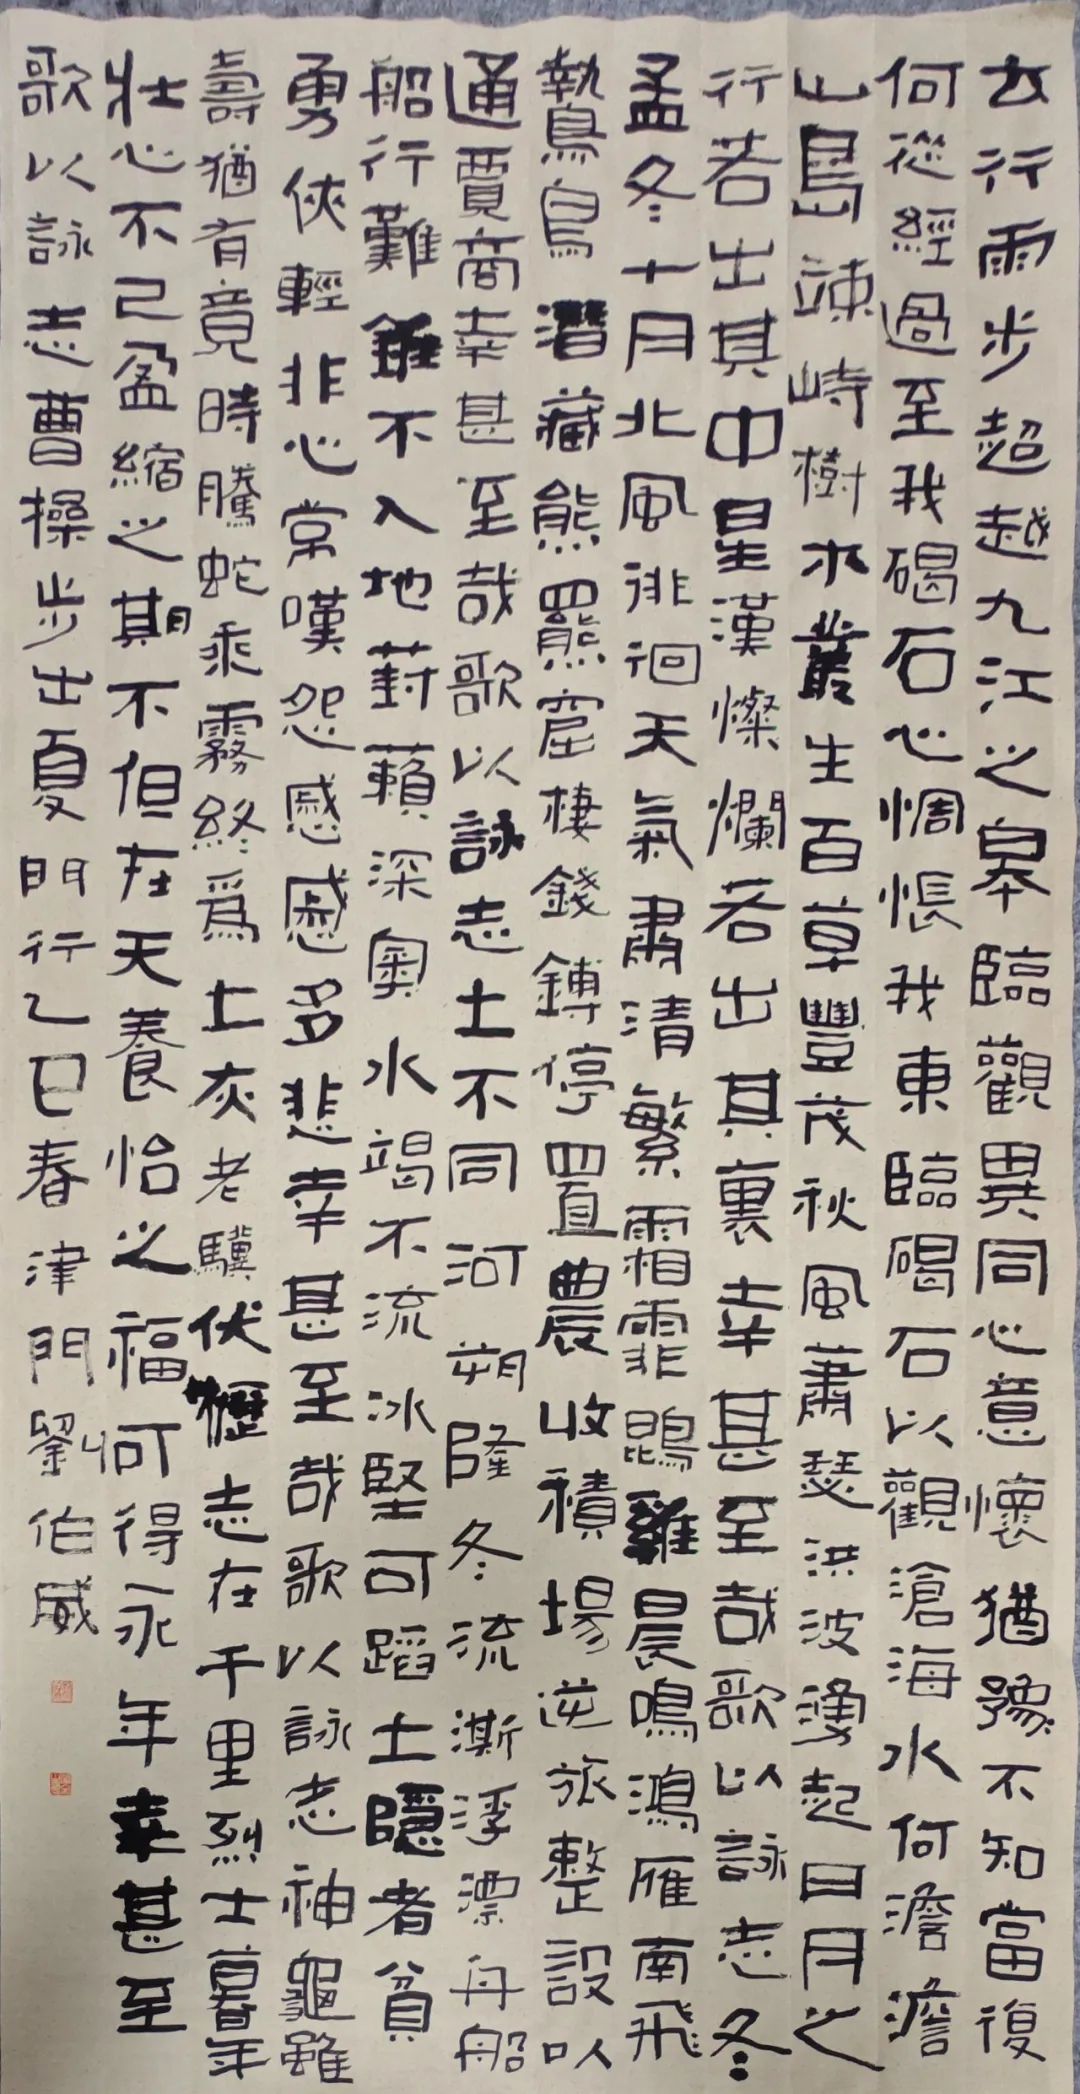 云行雨步超越九江之皋臨觀異同心意懷猶豫不知當復
何從經過至我碣石心惆悵我東臨碣石以觀滄海水何澹澹
山島竦峙樹木叢生百草豐茂秋風蕭瑟洪波湧起日月之
行若出其中星漢燦爛若出其裏幸甚至哉歌以詠志冬
孟冬十月北風徘徊天氣肅清繁霜霏鵾雞晨鳴鴻雁南飛
鷙鳥潛藏熊羆窟棲錢鎛停置農收積場逆旅整設以
通賈商幸甚至哉歌以詠志土不同河朔隆冬流澌浮漂舟船
船行難錐不入地葑藾深奧水竭不流冰堅可蹈士隱者貧
勇俠輕非心常嘆怨慼慼多悲幸甚至哉歌以詠志神龜雖
壽猶有竟時騰蛇乘霧終爲土灰老驥伏櫪志在千里烈士暮年
壯心不已盈縮之期不但在天養怡之福何得永年幸甚至
歌以詠志曹操步出夏門行乙巳春津門劉伯威